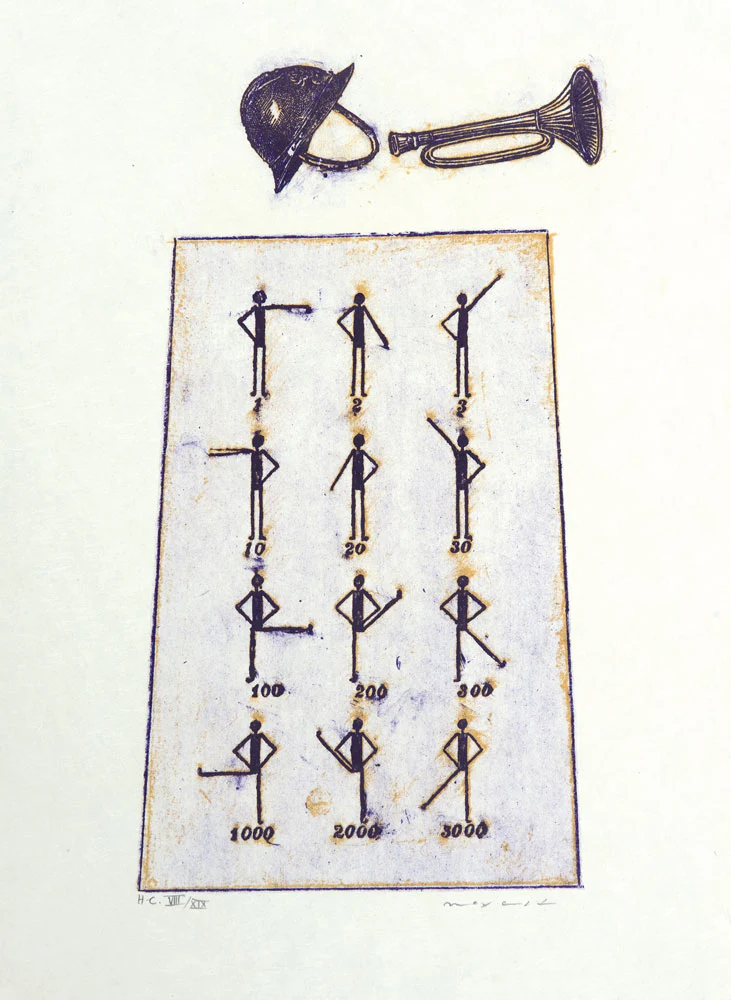 1 2 3
10 20 30
100 200 300
1000 2000 3000
H.C. VIII/XIX max ernst